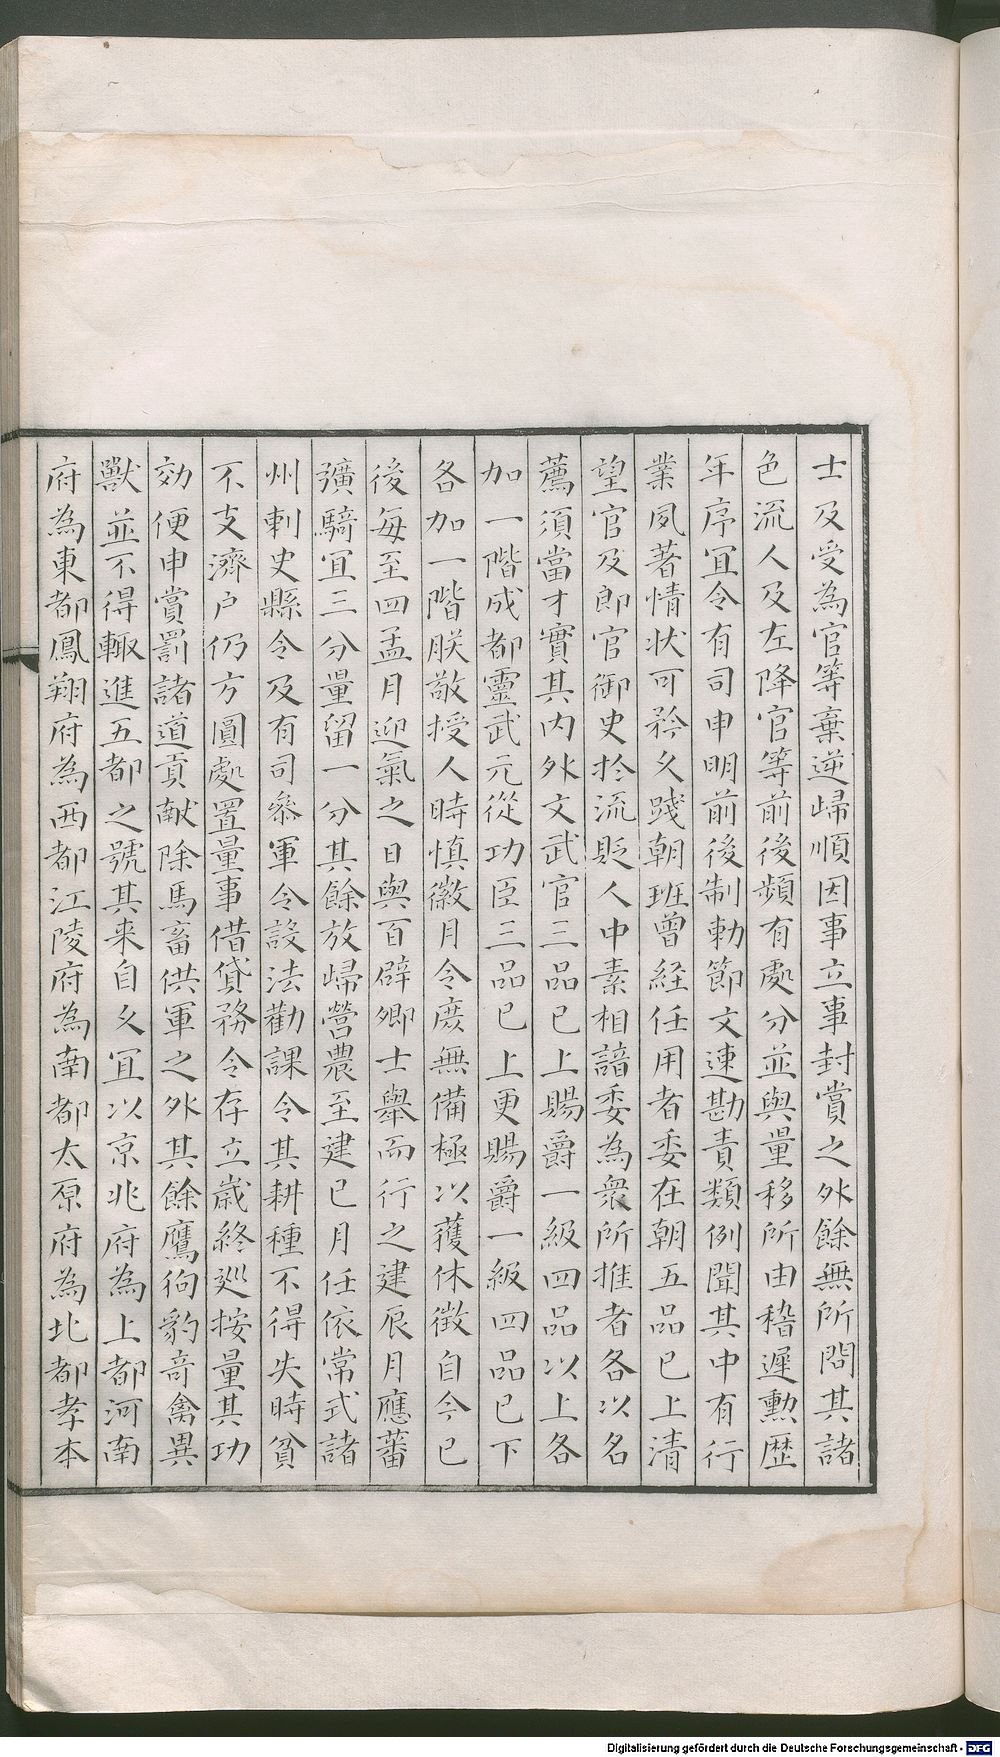 士及受為官等棄逆歸順因事立事封賞之外餘無所問其諸
色流人及左降官等前後頻有處分並與量移所由稽遲勲歷
年序冝令有司申明前後制勅節文速勘責類例聞其中有行
業夙著情狀可矜久踐朝班曾経任用者委在朝五品已上清
望官及郎官御史扵流貶人中素相諳委為衆所推者各以名
薦須當才實其内外文武官三品已上賜爵一級四品以上各
加一階成都靈武元從功臣三品已上更賜爵一級四品已下
各加一階朕敬授人時慎徽月令庶無備極以獲休徴自今已
後每至四孟月迎氣之日與百辟卿士舉而行之建辰月應蕃
彍騎冝三分量留一分其餘放歸營農至建巳月任依常式諸
州刺史縣令及有司叅軍令設法勸課令其耕種不得失時貧
不支濟户仍方圓處置量事借貸務令存立歲終巡按量其功
効便申賞罰諸道貢献除馬畜供軍之外其餘鷹狗豹竒禽異
獸並不得輙進五都之號其来自久冝以京兆府為上都河南
府為東都鳳翔府為西都江陵府為南都太原府為北都孝本
Digitalisierung gefördert durch die Deutsche Forschungsgemeinschaft - DFG